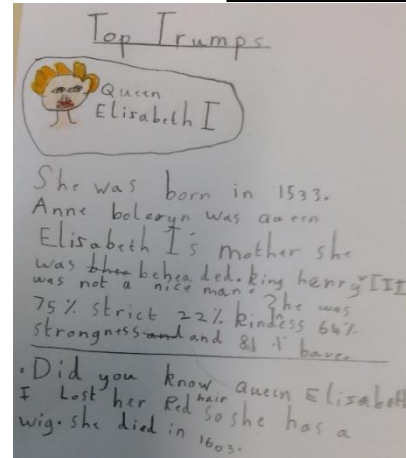 Top Trumps
Queen
Elisabeth I
She was born in 1533.
Anne boleryn was queen
Elisabeth I's mother she
was behea ded. King henry VIII
was not a nice man. She was
75% strict 22% kindess 64%
strongness and and 81 % bave
.Did you know queen Elisabeth
I Lost her Red hair So she has a
wig. she died in 1603.